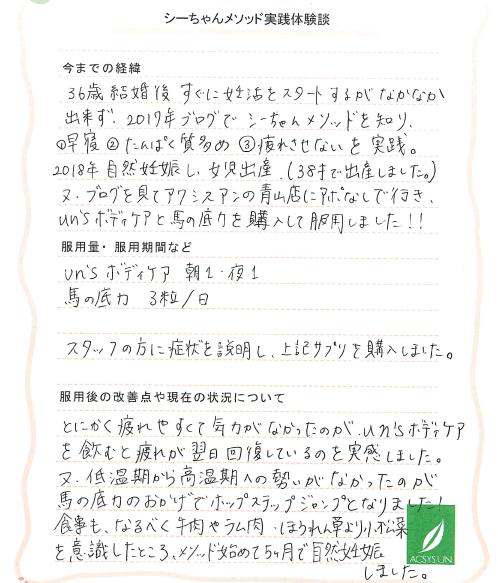 シーちゃんメソッド実践体験談
今までの経緯
36歳結婚後すぐに妊活をスタートするがなかなか
出来ず、2017年ブログでシーちゃんメソッドを知り、
①早寝②たんぱく質多め③疲れさせないを実践。
2018年自然妊娠し、女児出産。(38才で出産しました。)
又、ブログを見てアクシスアンの青山店にアポなしで行き、
un'sボディケアと馬の底力を購入して服用しました!!
服用量・服用期間など
un'sボディケア 朝1・夜1
馬の底力 3粒/日
スタッフの方に症状を説明し、上記サプリを購入しました。
服用後の改善点や現在の状況について
とにかく疲れやすくて気力がなかったのが、un'sボディケア
を飲むと疲れが翌日回復しているのを実感しました。
又、低温期から高温期への勢いがなかったのが
馬の底力のおかげでホップステップジャンプとなりました!
食事も、なるべく牛肉やラム肉・ほうれん草より小松菜
を意識したところ、メソッド始めて5ヶ月で自然妊娠
しました。
ACSYS UN